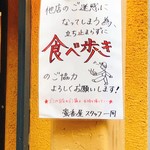 他店のご迷惑に
なってしまう為、
立ち止まらずに
食べ歩き
のご協力
よろしくお願いします!
スタッフ一同